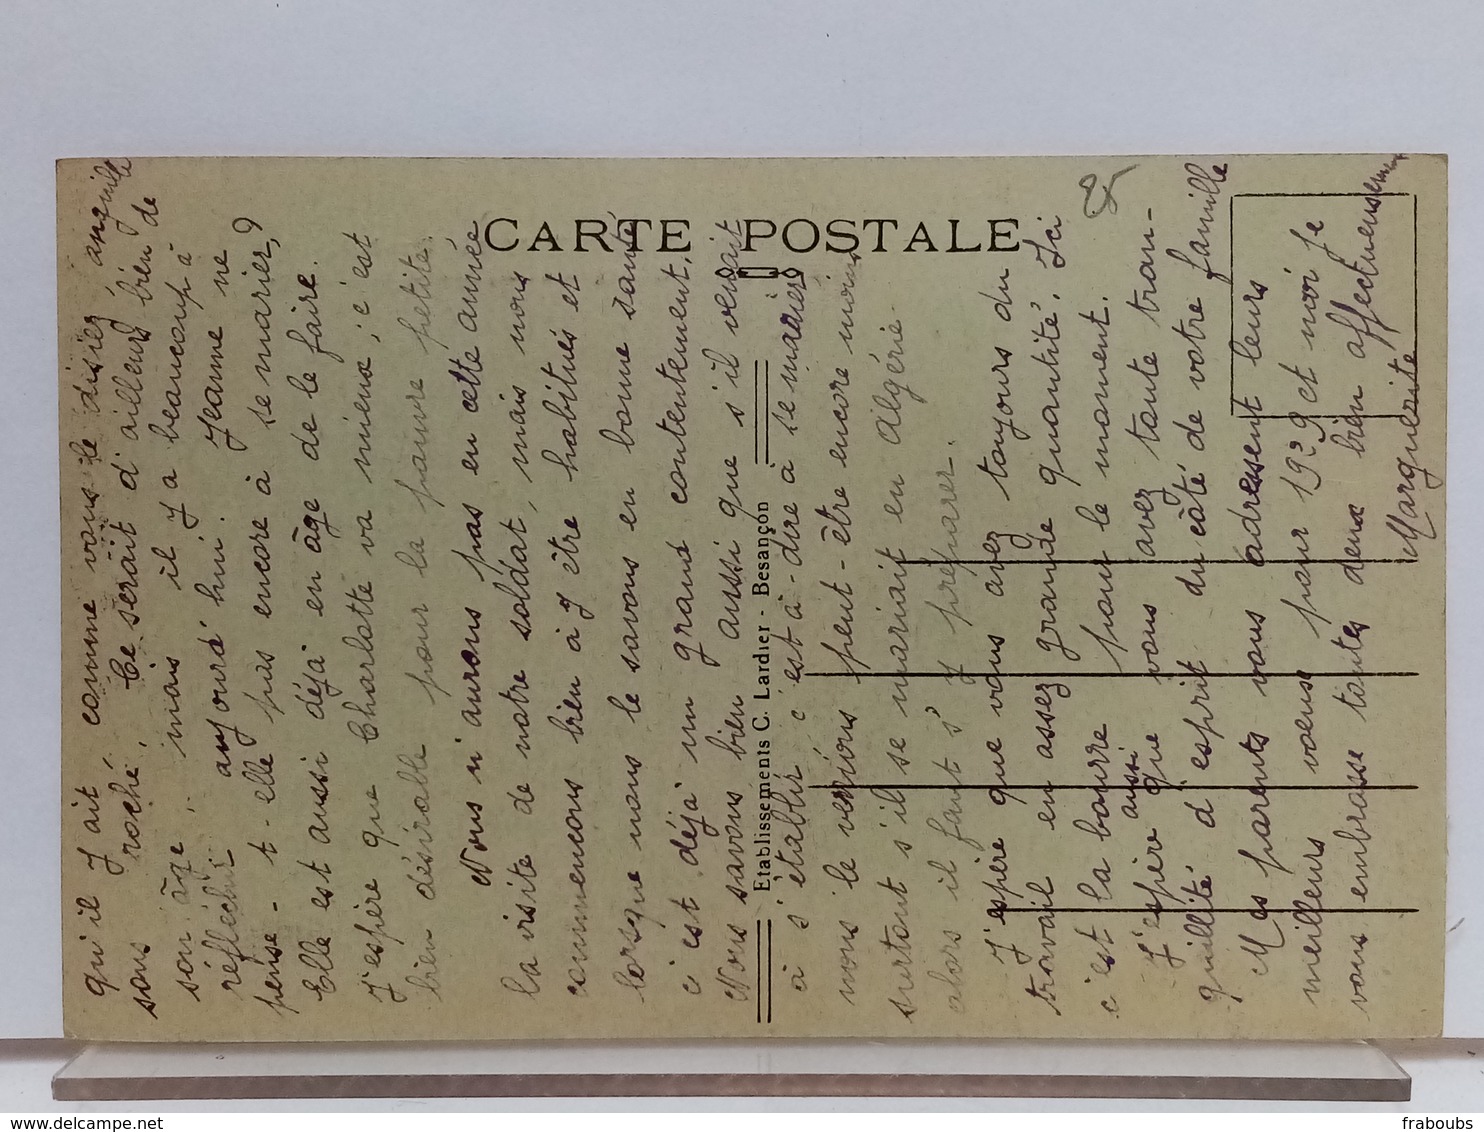 CARTE POSTALE
Etablissements C. Lardier - Besançon
25
qu'il y ait comme vous le disiez anguille
sous roche. Ce serait d'ailleurs bien de
son âge, mais il y a beaucoup à
réfléchir aujourd'hui. Jeanne ne
pense-t-elle pas encore à se marier?
Elle est aussi déjà en âge de le faire.
J'espère que Charlotte va mieux; c'est
bien désirable pour la pauvre petite.
Nous n'aurons pas en cette année
la visite de notre soldat, mais nous
commencons bien à y être habitués et
lorsque nous le savons en bonne santé
c'est déjà un grand contentement.
Nous savons bien aussi que s'il venait
à s'établir c'est-à-dire à se marier
nous le verrions peut-être encore moins
surtout s'il se mariait en Algérie.
alors il faut s'y préparer.
J'espère que vous avez toujours du
travail en assez grande quantité. Ici
c'est la bourre pour le moment.
J'espère aussi que vous avez toute tran-
quillité d'esprit du côté de votre famille
Mes parents vous adressent leurs
meilleurs voeux pour 1929 et moi je
vous embrasse toutes deux bien affectueusement
Marguerite
fraboubs